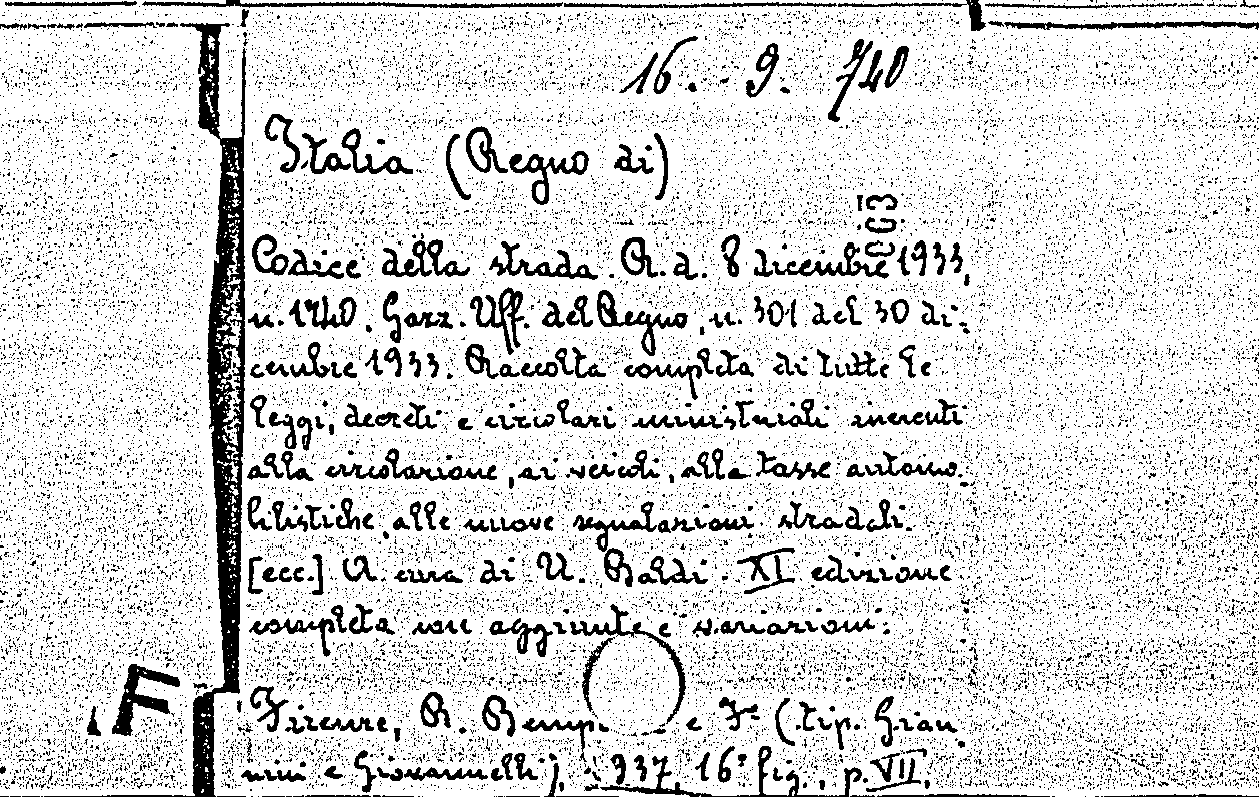 16. - 9. 740
Italia (Regno di)
Codice della strada. R. d. 8 dicembre 1933,
n. 1740. Gazz. Uff. del Regno, n. 301 del 30 di-
cembre 1933. Raccolta completa di tutte le
leggi, decreti e circolari ministeriali inerenti
alla circolazione, ai veicoli, alle tasse automo-
bilistiche, alle nuove segnalazioni stradali.
[ecc.] A cura di U. Baldi. XI edizione
completa con aggiunte e variazioni.
F
Firenze, R. Bemp e F° (tip. Gian-
nini e Giovannelli), 937, 16° fig., p. VII,